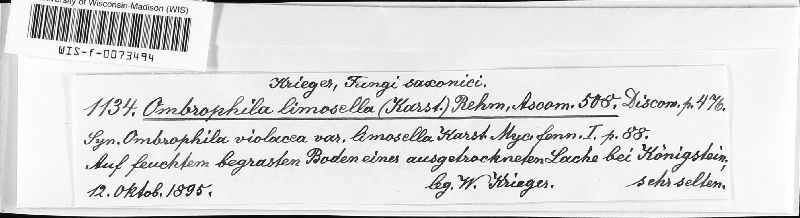 University of Wisconsin-Madison (WIS)
WIS-f-0073494
Krieger, Fungi saxonici.
1134. Ombrophila limosella (Karst.) Rehm, Ascom. 508. Discom. p. 476.
Syn. Ombrophila violacea var. limosella Karst. Myc. fenn. I. p. 88.
Auf feuchtem begrasten Boden einer ausgetrockneten Lache bei Königstein,
12. Oktob. 1895. leg. W. Krieger. sehr selten.